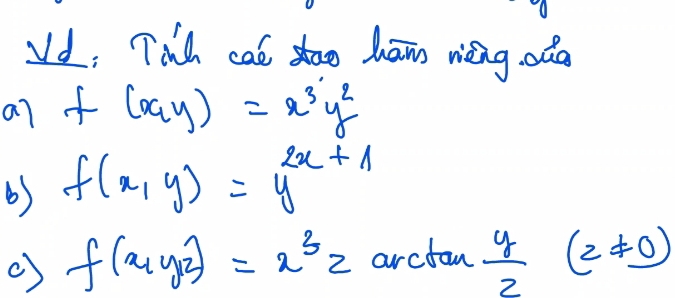 Vd: Tính các đạo hàm riêng của
a) f(x,y) = x³y²
b) f(x, y) = y^{2x+1}
c) f(x,y,z) = x³z arctan y/z (z ≠ 0)